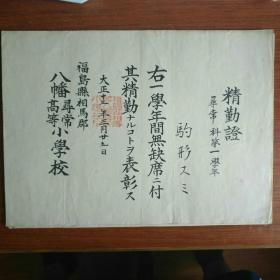 精勤證
尋常科第一學年
駒形スミ
右一學年間無缺席ニ付
其精勤ナルコトヲ表彰ス
大正十一年三月廿五日
福島縣相馬郡
八幡尋常高等小學校